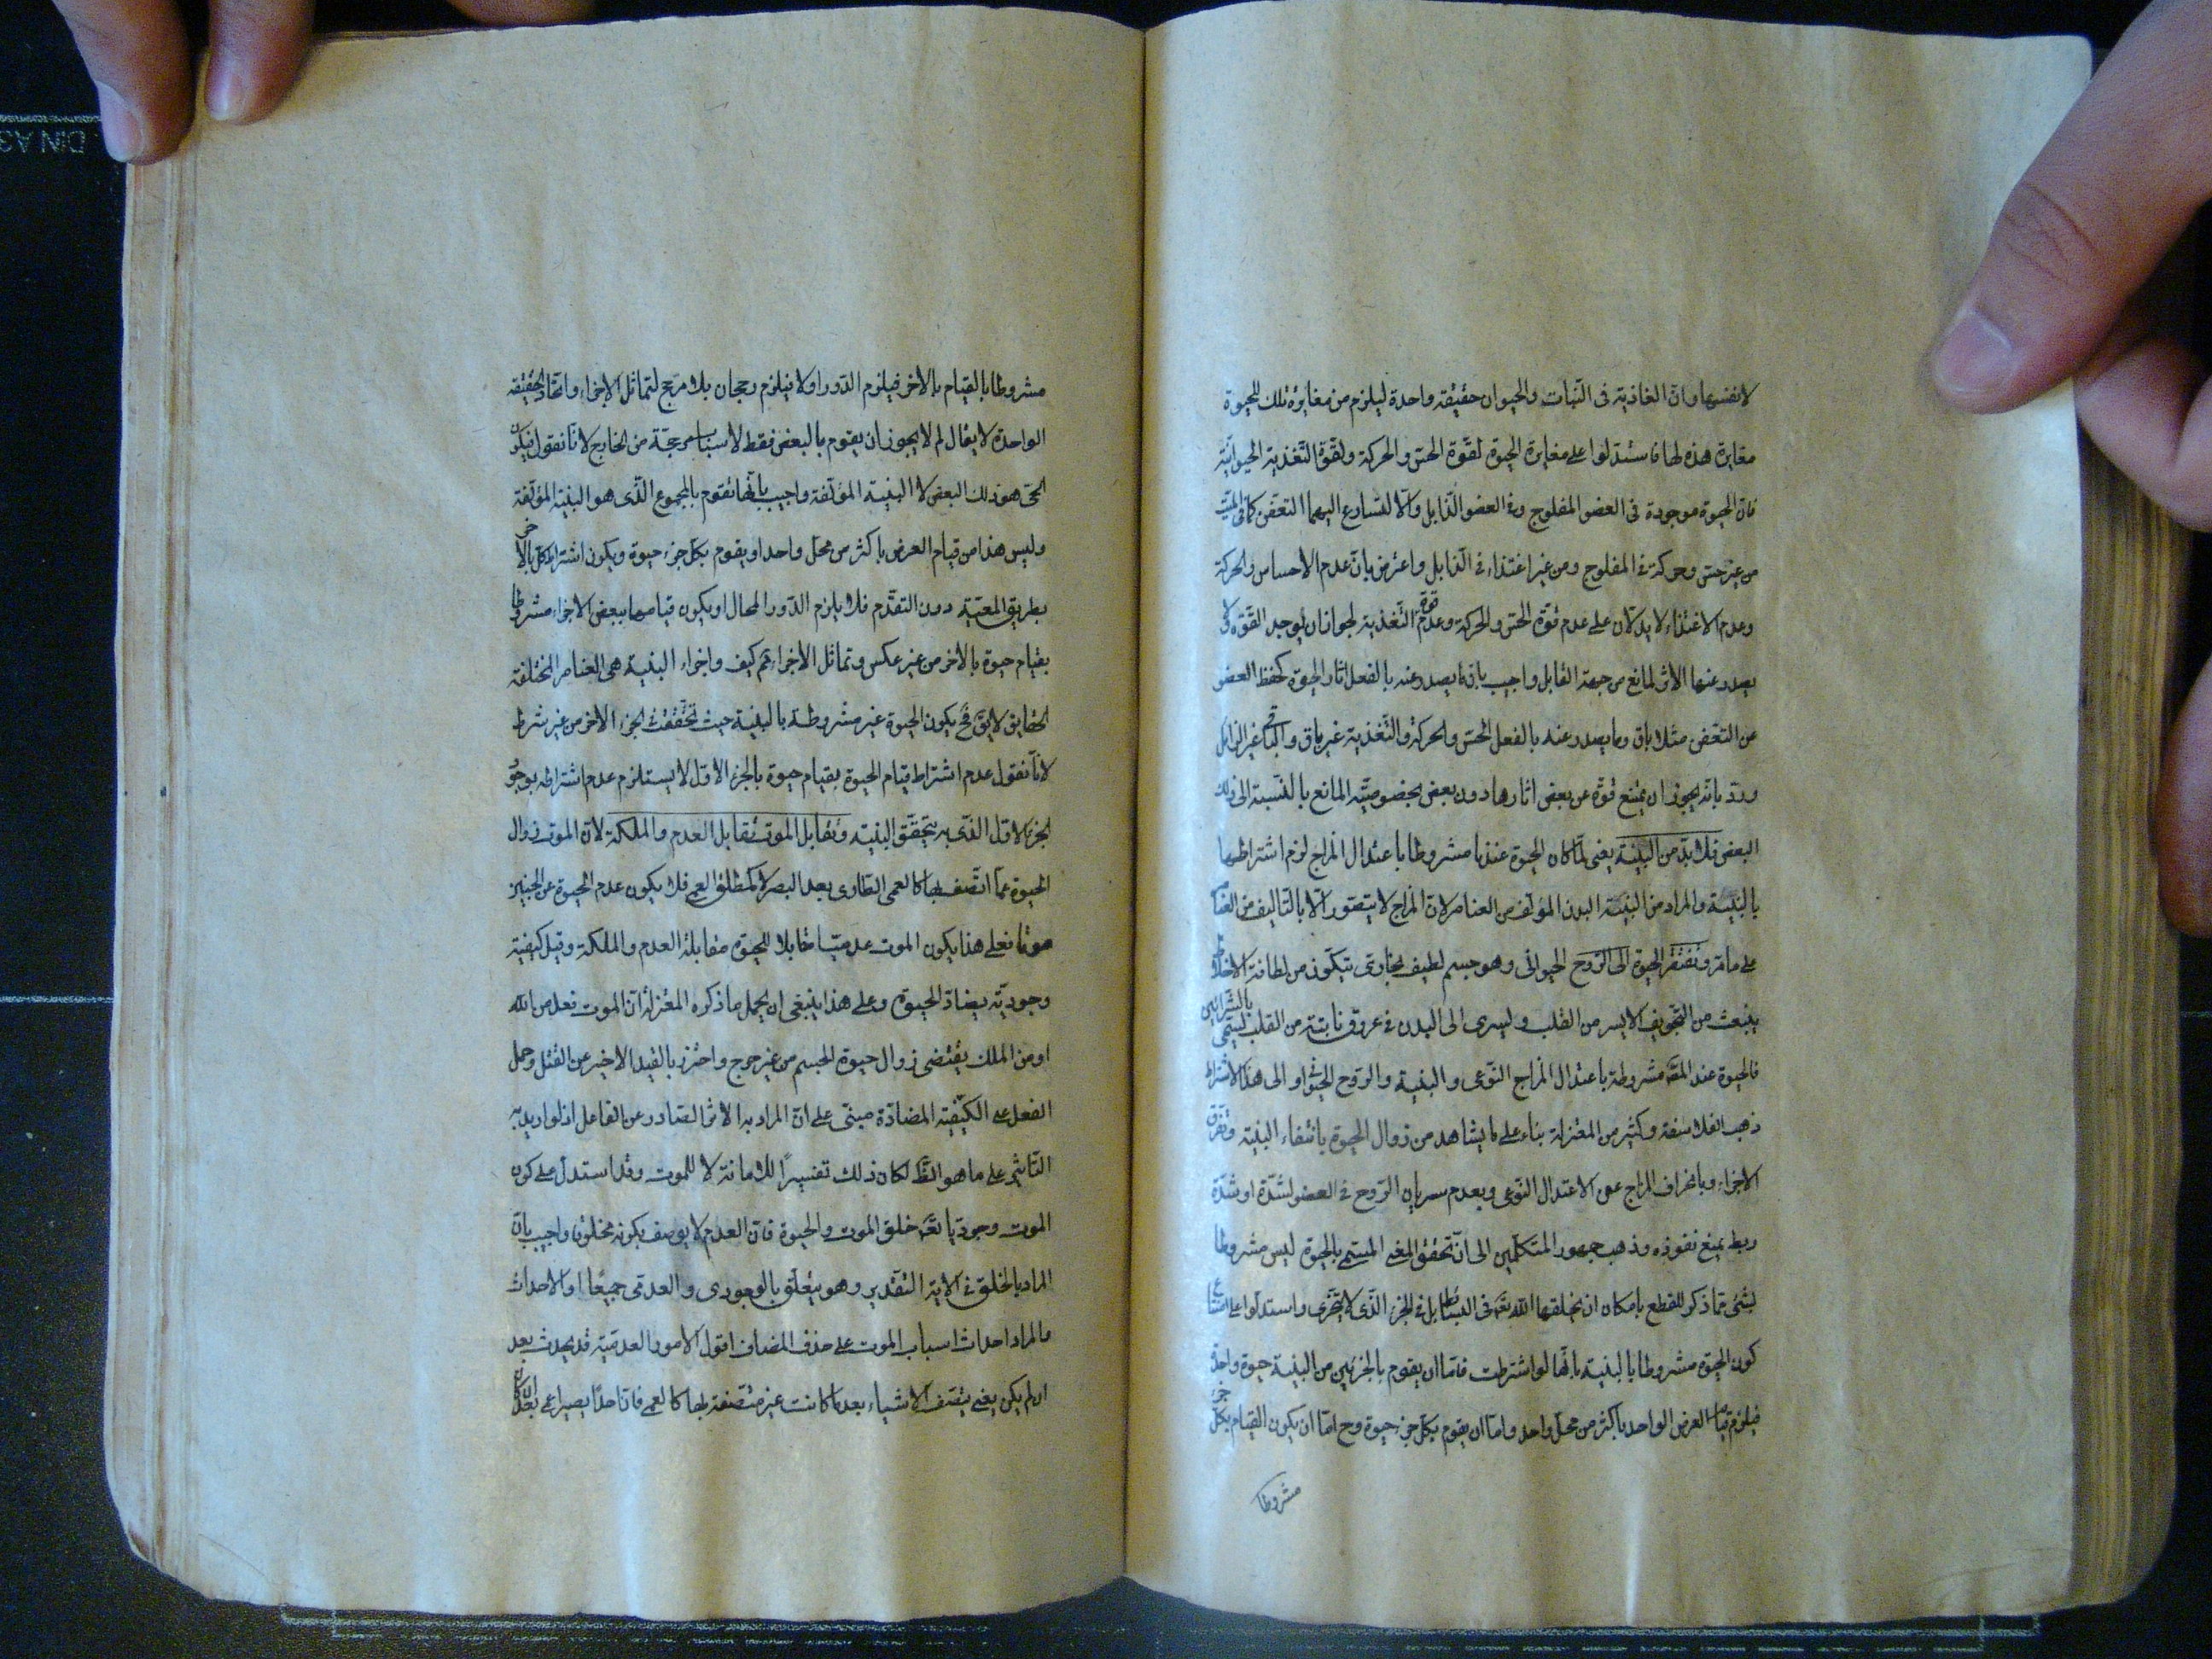 لانفسها وان الغاذية فى النبات والحيوان حقيقة واحدة ليلزم من مغايرة تلك للحيوة
مغايرة هذه لها فاستدلوا على مغايرة الحيوة لقوة الحس والحركة ولقوة التغذية الحيوانية
فان الحيوة موجودة فى العضو المفلوج وفى العضو الذابل والا لتسارع اليهما التعفن كما فى الميت
من غير حس وحركة فى المفلوج ومن غير اغتذاء فى الذابل واعترض بان عدم الاحساس والحركة
وعدم الاغتذاء لا يدلان على عدم قوة الحس والحركة وعدم قوة التغذية لجواز ان يوجد القوة ولا
يصدر عنها الاثر لمانع من جهة القابل واجيب بان ما يصدر عنه بالفعل اثار الحيوة كحفظ العضو
عن التعفن مثلا باق وما يصدر عنه بالفعل الحس والحركة والتغذية غير باق والباقى غير الزايل
ورد بانه يجوز ان يمنع قوة عن بعض اثارها دون بعض لخصوصية المانع بالنسبة الى ذلك
البعض فلا بد من البنية يعنى لما كان الحيوة عندنا مشروطا باعتدال المزاج لزم اشتراطها
بالبنية والمراد من البنية البدن المؤلف من العناصر لان المزاج لا يتصور الا بالتاليف من العناصر
على ما مر وتفتقر الحيوة الى الروح الحيوانى وهو جسم لطيف بخارى يتكون من لطافة الاخلاط
ينبعث من التجويف الايسر من القلب ويسرى الى البدن فى عروق نابتة من القلب تسمى بالشرائين
فالحيوة عند المص مشروطة باعتدال المزاج النوعى والبنية والروح الحيوانى والى هذا الاشتراط
ذهب الفلاسفة وكثير من المعتزلة بناء على ما يشاهد من زوال الحيوة بانتفاء البنية وتفرق
الاجزاء وبانحراف المزاج عن الاعتدال النوعى وبعدم سريان الروح فى العضو لشدة او شدة
ربط يمنع نفوذه وذهب جمهور المتكلمين الى ان تحقق المعنى المسمى بالحيوة ليس مشروطا
بشئ مما ذكر للقطع بامكان ان يخلقها الله تعه فى البسائط بل فى الجزء الذى لا يتجزى واستدلوا على امتناع
كون الحيوة مشروطا بالبنية بانها لو اشترطت فاما ان يقوم بالجزئين من البنية حيوة واحدة
فيلزم قيام العرض الواحد باكثر من محل واحد واما ان يقوم بكل جزء حيوة وح اما ان يكون القيام بكل جزء
مشروطا
مشروطا بالقيام بالاخر فيلزم الدور اولا فيلزم رجحان بلا مرجح لتماثل الاجزاء واتحاد الحقيقة
الواحدة لا يقال لم لا يجوز ان يقوم بالبعض فقط لاسباب مرجحة من الخارج لانا نقول فيكون
الحى هو ذلك البعض لا البنية المؤلفة واجيب بانها تقوم بالمجموع الذى هو البنية المؤلفة
وليس هذا من قيام العرض باكثر من محل واحد او يقوم بكل جزء حيوة ويكون اشتراط كل بالاخر
بطريق المعية دون التقدم فلا يلزم الدور المحال او يكون قيامها ببعض الاجزاء مشروطا
بقيام حيوة بالاخر من غير عكس وتماثل الاجزاء مم كيف واجزاء البنية هى العناصر المختلفة
الحقايق لا يق فح يكون الحيوة غير مشروطة بالبنية حيث تحققت الجزء الاخر من غير شرط
لانا نقول عدم اشتراط قيام الحيوة بقيام حيوة بالجزء الاول لا يستلزم عدم اشتراطه بوجود
الجزء الاول الذى به يتحقق البنية وتقابل الموت تقابل العدم والملكة لان الموت زوال
الحيوة عما اتصف بها كالعمى الطارى بعد البصر لا كمطلق العمى فلا يكون عدم الحيوة عن الجنين
موتا فعلى هذا يكون الموت عدميا مقابلا للحيوة مقابلة العدم والملكة وقيل كيفية
وجودية يضاد الحيوة وعلى هذا ينبغى ان يحمل ما ذكره المعتزلة ان الموت فعل من الله
او من الملك يقتضى زوال حيوة الجسم من غير جرح واحترز بالقيد الاخير عن القتل وحمل
الفعل على الكيفية المضادة مبنى على ان المراد به الاثر الصادر عن الفاعل اذ لو اريد به
التاثير على ما هو الظ لكان ذلك تفسيرا للاماتة لا للموت وقد استدل على كون
الموت وجوديا بقه خلق الموت والحيوة فان العدم لا يوصف بكونه مخلوقا واجيب بان
المراد بالخلق فى الاية التقدير وهو يتعلق بالوجودى والعدمى جميعا او الاحداث
والمراد احداث اسباب الموت على حذف المضاف اقول الامور العدمية قد يحدث بعد
ان لم يكن يعنى يتصف الاشياء بعد ما كانت غير متصفة بها كالعمى فان احدا يصير اعمى بعد ان كان